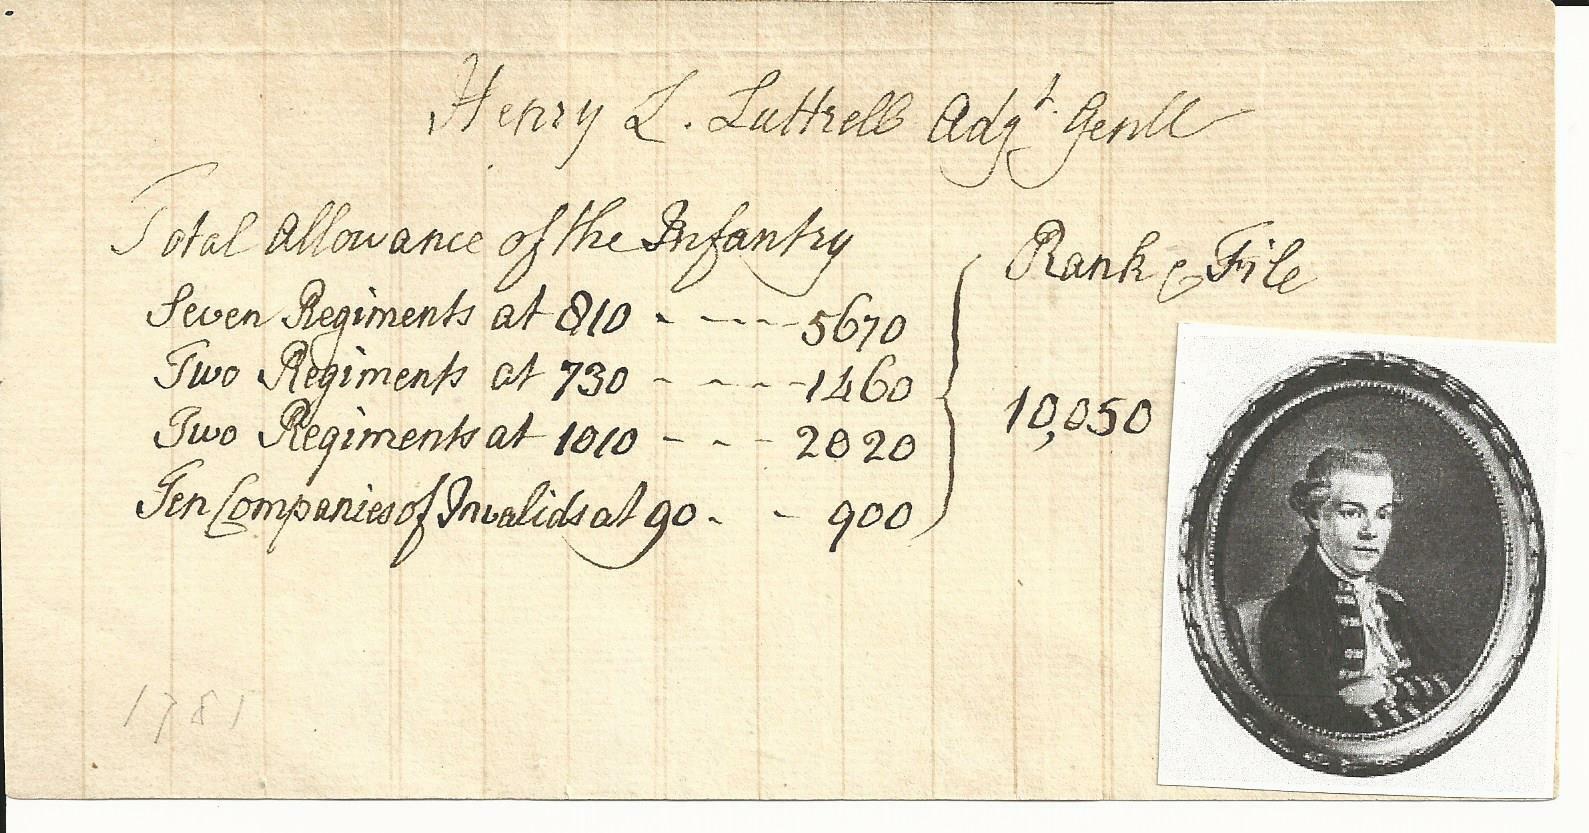 Henry L. Luttrell Adjt. Genll
Total Allowance of the Infantry
Rank & File
Seven Regiments at 810 - - - - - 5670
Two Regiments at 730 - - - - - 1460
10,050
Two Regiments at 1010 - - - 2020
Ten Companies of Invalids at 90 - - 900
1781